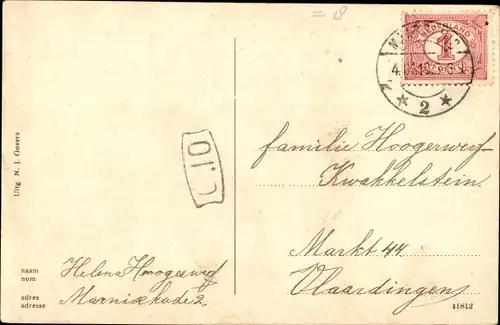 = 8
NEDERLAND
1
2
familie Hoogerwerf
Kwakkelstein.
Markt 44
Vlaardingen
Uitg. N. J. Govers
naam
nom
Helena Hoogerwerf
adres
adresse
Marnixkade 2
41812